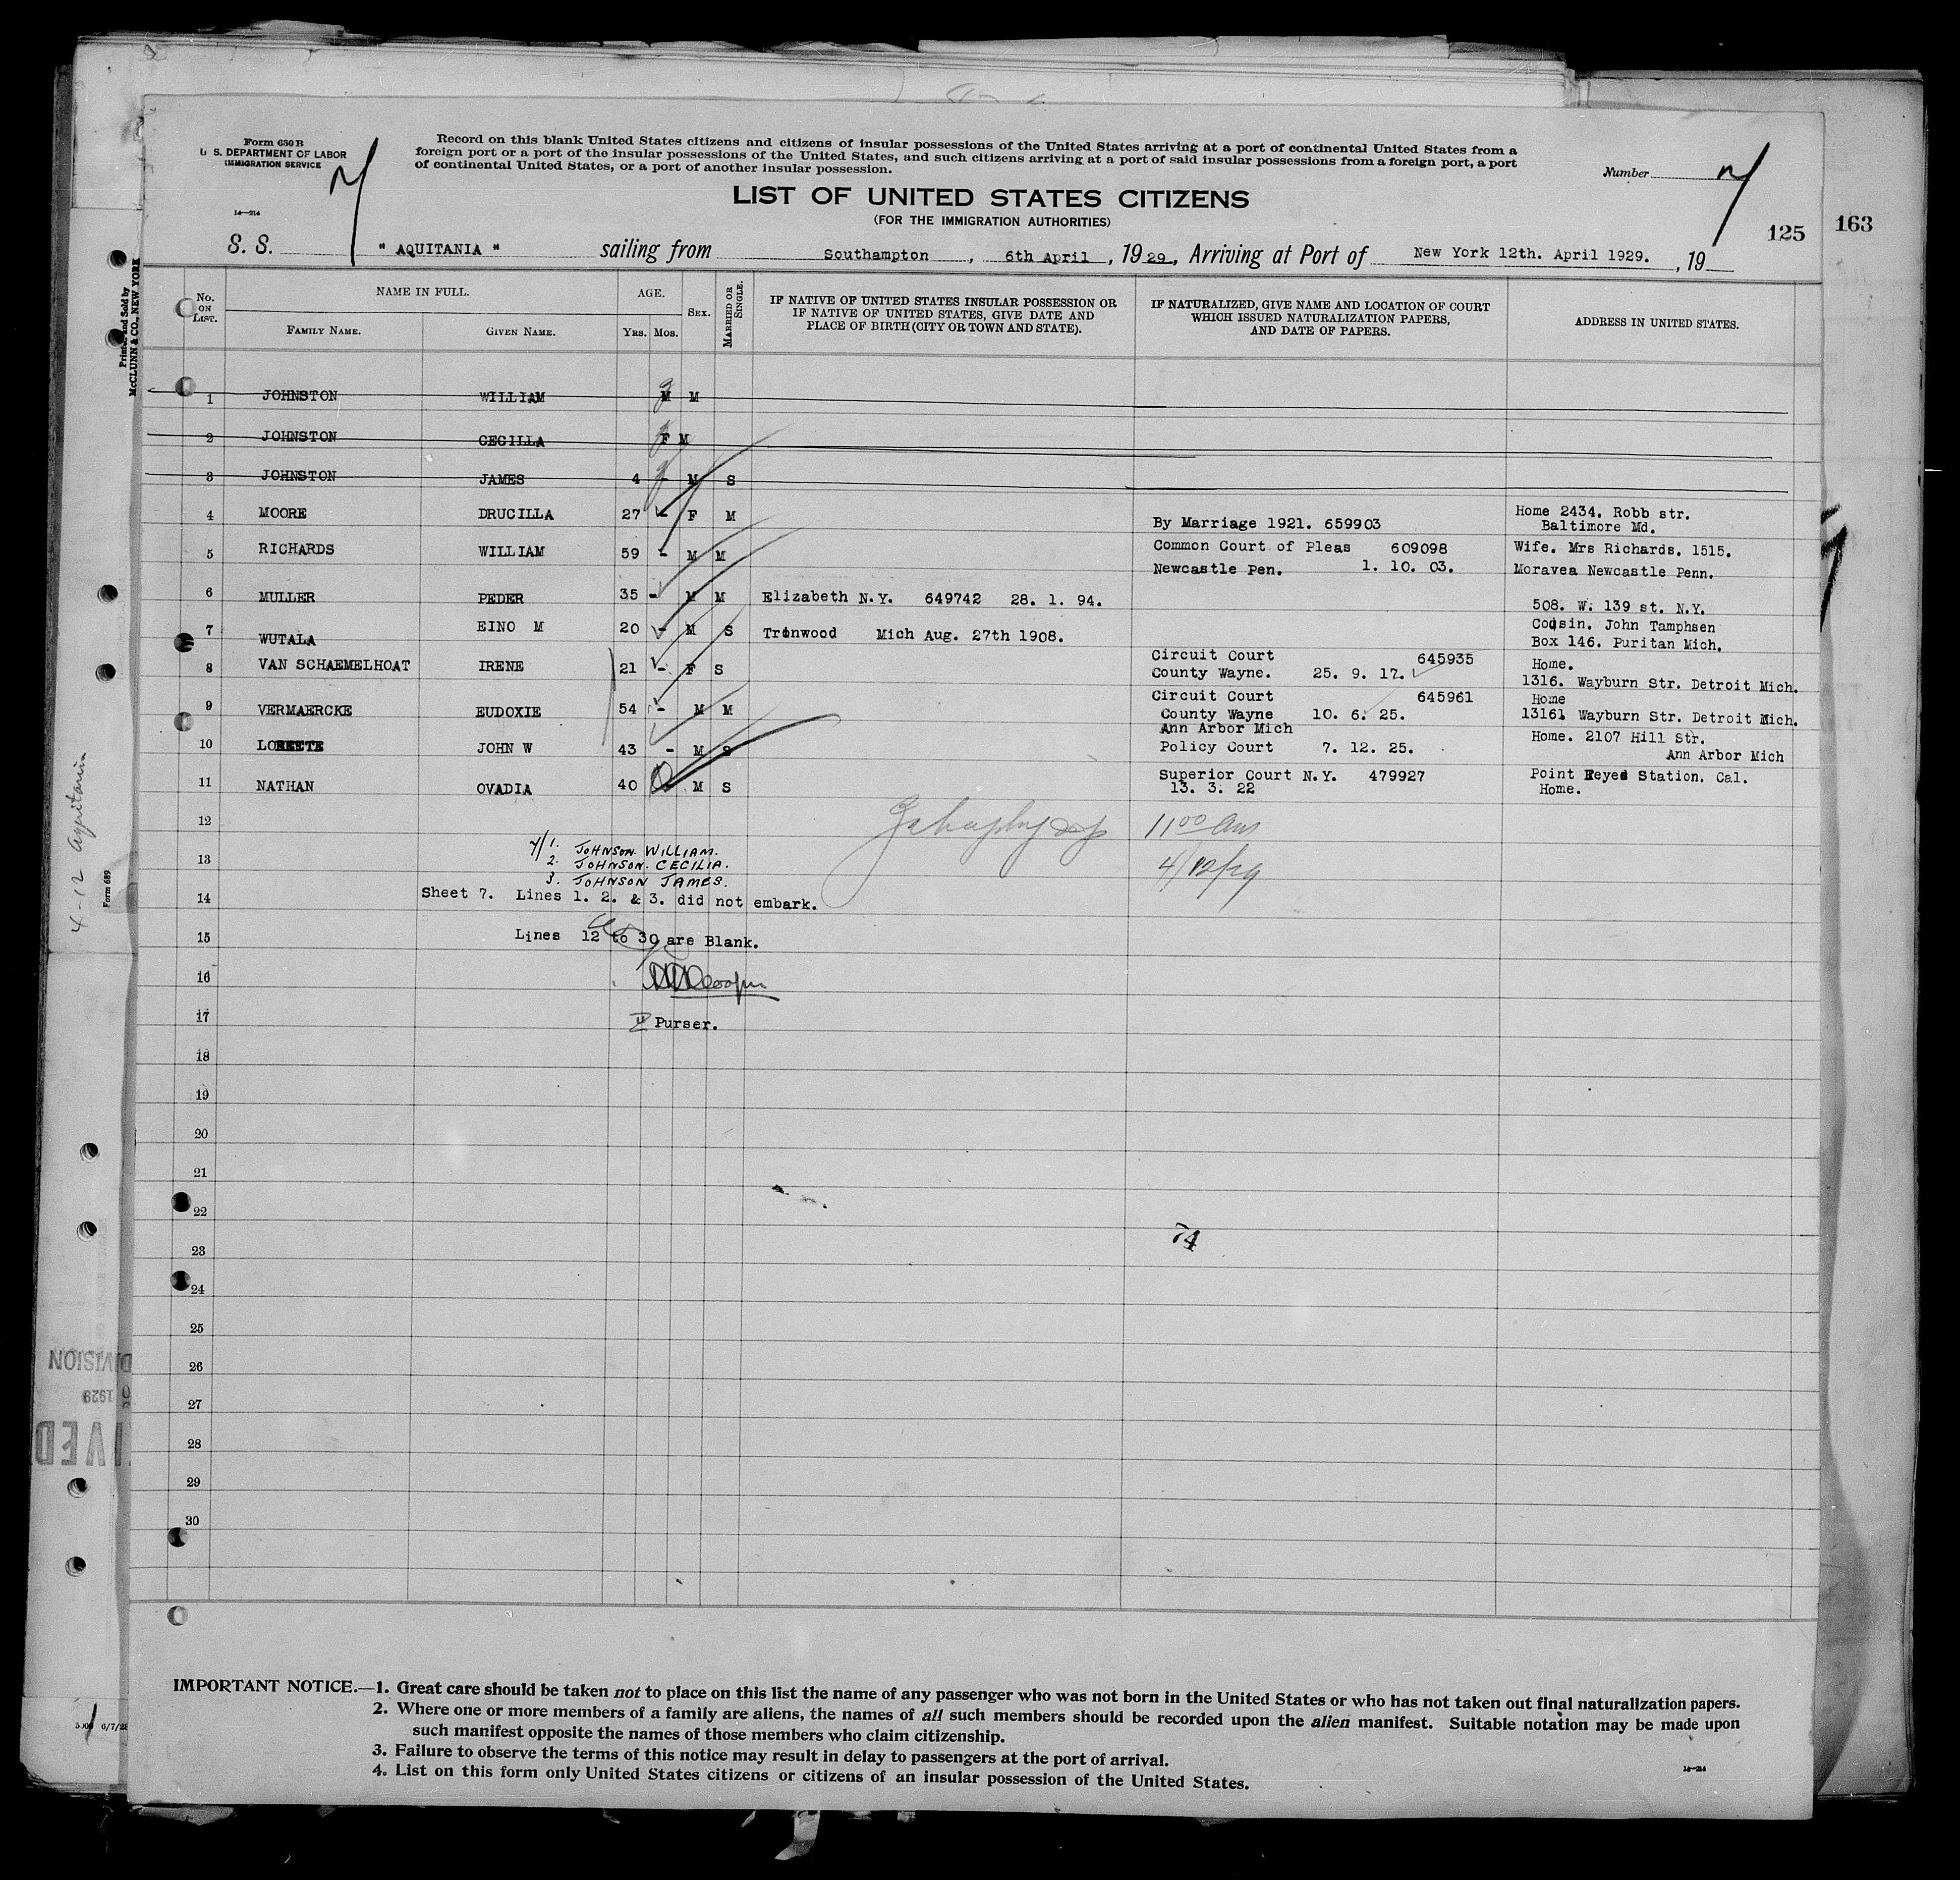 Form 630 B
U. S. DEPARTMENT OF LABOR
IMMIGRATION SERVICE
14—214
Record on this blank United States citizens and citizens of insular possessions of the United States arriving at a port of continental United States from a
foreign port or a port of the insular possessions of the United States, and such citizens arriving at a port of said insular possessions from a foreign port, a port
of continental United States, or a port of another insular possession.
Number 7
LIST OF UNITED STATES CITIZENS
(FOR THE IMMIGRATION AUTHORITIES)
125 163
S. S. " AQUITANIA " sailing from Southampton, 6th April, 19 29, Arriving at Port of New York 12th. April 1929., 19
No. ON LIST. NAME IN FULL. FAMILY NAME. GIVEN NAME. AGE. YRS. MOS. SEX. MARRIED OR SINGLE.
IF NATIVE OF UNITED STATES INSULAR POSSESSION OR
IF NATIVE OF UNITED STATES, GIVE DATE AND
PLACE OF BIRTH (CITY OR TOWN AND STATE).
IF NATURALIZED, GIVE NAME AND LOCATION OF COURT
WHICH ISSUED NATURALIZATION PAPERS,
AND DATE OF PAPERS.
ADDRESS IN UNITED STATES.
1 JOHNSTON WILLIAM M M
2 JOHNSTON CECILLA F M
3 JOHNSTON JAMES 4 - M S
4 MOORE DRUCILLA 27 - F M By Marriage 1921. 659903 Home 2434. Robb str.
Baltimore Md.
5 RICHARDS WILLIAM 59 - M M Common Court of Pleas 609098 Wife. Mrs Richards. 1515.
Newcastle Pen. 1. 10. 03. Moravea Newcastle Penn.
6 MULLER PEDER 35 - M M Elizabeth N.Y. 649742 28. 1. 94. 508. W. 139 st. N.Y.
7 WUTALA EINO M 20 - M S Tronwood Mich Aug. 27th 1908. Cousin. John Tamphsen
Box 146. Puritan Mich.
8 VAN SCHAEMELHOAT IRENE 21 - F S Circuit Court 645935 Home.
County Wayne. 25. 9. 17. 1316. Wayburn Str. Detroit Mich.
9 VERMAERCKE EUDOXIE 54 - M M Circuit Court 645961 Home
County Wayne 10. 6. 25. 13161 Wayburn Str. Detroit Mich.
10 LORETTE JOHN W 43 - M S Ann Arbor Mich Home. 2107 Hill Str.
Policy Court 7. 12. 25. Ann Arbor Mich
11 NATHAN OVADIA 40 M S Superior Court N.Y. 479927 Point Reyes Station. Cal.
13. 3. 22 Home.
12
11 00 am
13
4/12/29
7/1. JOHNSON WILLIAM.
2. JOHNSON. CECILIA.
3. JOHNSON JAMES.
14 Sheet 7. Lines 1. 2. & 3. did not embark.
15 Lines 12 to 30 are Blank.
16
17 II Purser.
18
19
20
21
22
74
23
24
25
26
27
28
29
30
IMPORTANT NOTICE.—1. Great care should be taken not to place on this list the name of any passenger who was not born in the United States or who has not taken out final naturalization papers.
2. Where one or more members of a family are aliens, the names of all such members should be recorded upon the alien manifest. Suitable notation may be made upon
such manifest opposite the names of those members who claim citizenship.
3. Failure to observe the terms of this notice may result in delay to passengers at the port of arrival.
4. List on this form only United States citizens or citizens of an insular possession of the United States.
14—214
Printed and Sold by
McCLUNN & CO., NEW YORK
4-12 Aquitania
Form 689
DIVISION
1929
6/7/28